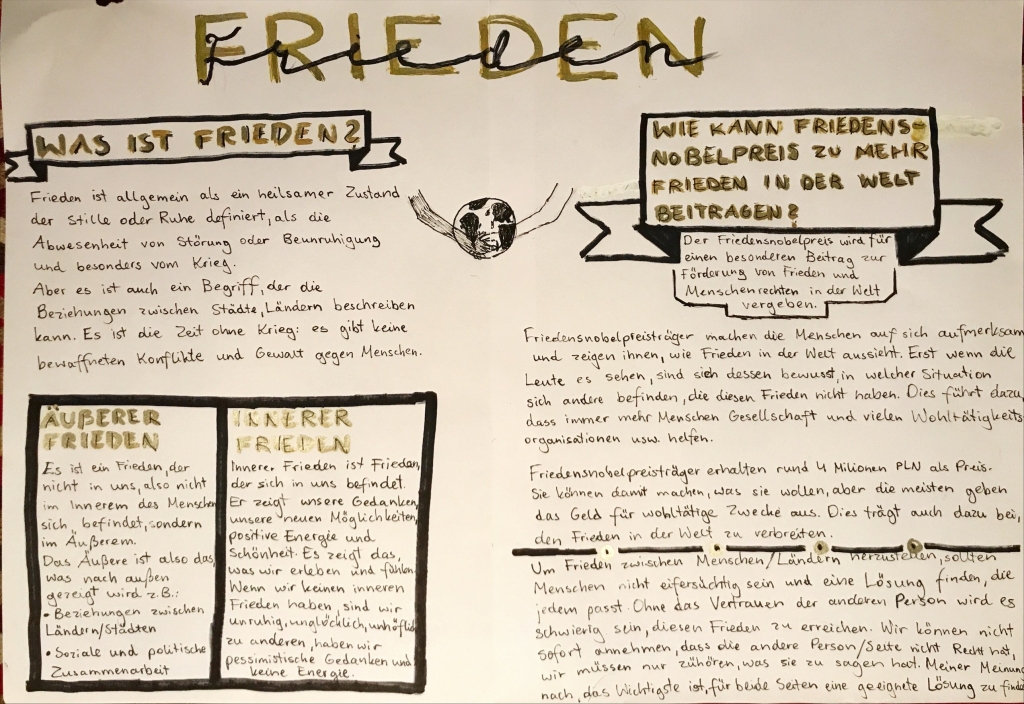 FRIEDEN
Frieden
WAS IST FRIEDEN?
Frieden ist allgemein als ein heilsamer Zustand
der Stille oder Ruhe definiert, als die
Abwesenheit von Störung oder Beunruhigung
und besonders vom Krieg.
Aber es ist auch ein Begriff, der die
Beziehungen zwischen Städte, Ländern beschreiben
kann. Es ist die Zeit ohne Krieg: es gibt keine
bewaffneten Konflikte und Gewalt gegen Menschen.
ÄUßERER
FRIEDEN
Es ist ein Frieden, der
nicht in uns, also nicht
im Innerem des Menschen
sich befindet, sondern
im Äußerem.
Das Äußere ist also das,
was nach außen
gezeigt wird z.B.:
• Beziehungen zwischen
Ländern/Städten
• Soziale und politische
Zusammenarbeit
INNERER
FRIEDEN
Innerer Frieden ist Frieden,
der sich in uns befindet.
Er zeigt unsere Gedanken,
unsere neuen Möglichkeiten,
positive Energie und
Schönheit. Es zeigt das,
was wir erleben und fühlen.
Wenn wir keinen inneren
Frieden haben, sind wir
unruhig, unglücklich, unhöflich
zu anderen, haben wir
pessimistische Gedanken und
keine Energie.
WIE KANN FRIEDENS-
NOBELPREIS ZU MEHR
FRIEDEN IN DER WELT
BEITRAGEN?
Der Friedensnobelpreis wird für
einen besonderen Beitrag zur
Förderung von Frieden und
Menschenrechten in der Welt
vergeben.
Friedensnobelpreisträger machen die Menschen auf sich aufmerksam
und zeigen ihnen, wie Frieden in der Welt aussieht. Erst wenn die
Leute es sehen, sind sich dessen bewusst, in welcher Situation
sich andere befinden, die diesen Frieden nicht haben. Dies führt dazu,
dass immer mehr Menschen Gesellschaft und vielen Wohltätigkeits
organisationen usw. helfen.
Friedensnobelpreisträger erhalten rund 4 Milionen PLN als Preis.
Sie können damit machen, was sie wollen, aber die meisten geben
das Geld für wohltätige Zwecke aus. Dies trägt auch dazu bei,
den Frieden in der Welt zu verbreiten.
Um Frieden zwischen Menschen/Ländern herzustellen, sollten
Menschen nicht eifersüchtig sein und eine Lösung finden, die
jedem passt. Ohne das Vertrauen der anderen Person wird es
schwierig sein, diesen Frieden zu erreichen. Wir können nicht
sofort annehmen, dass die andere Person/Seite nicht Recht hat,
wir müssen nur zuhören, was sie zu sagen hat. Meiner Meinung
nach, das Wichtigste ist, für beide Seiten eine geeignete Lösung zu finden